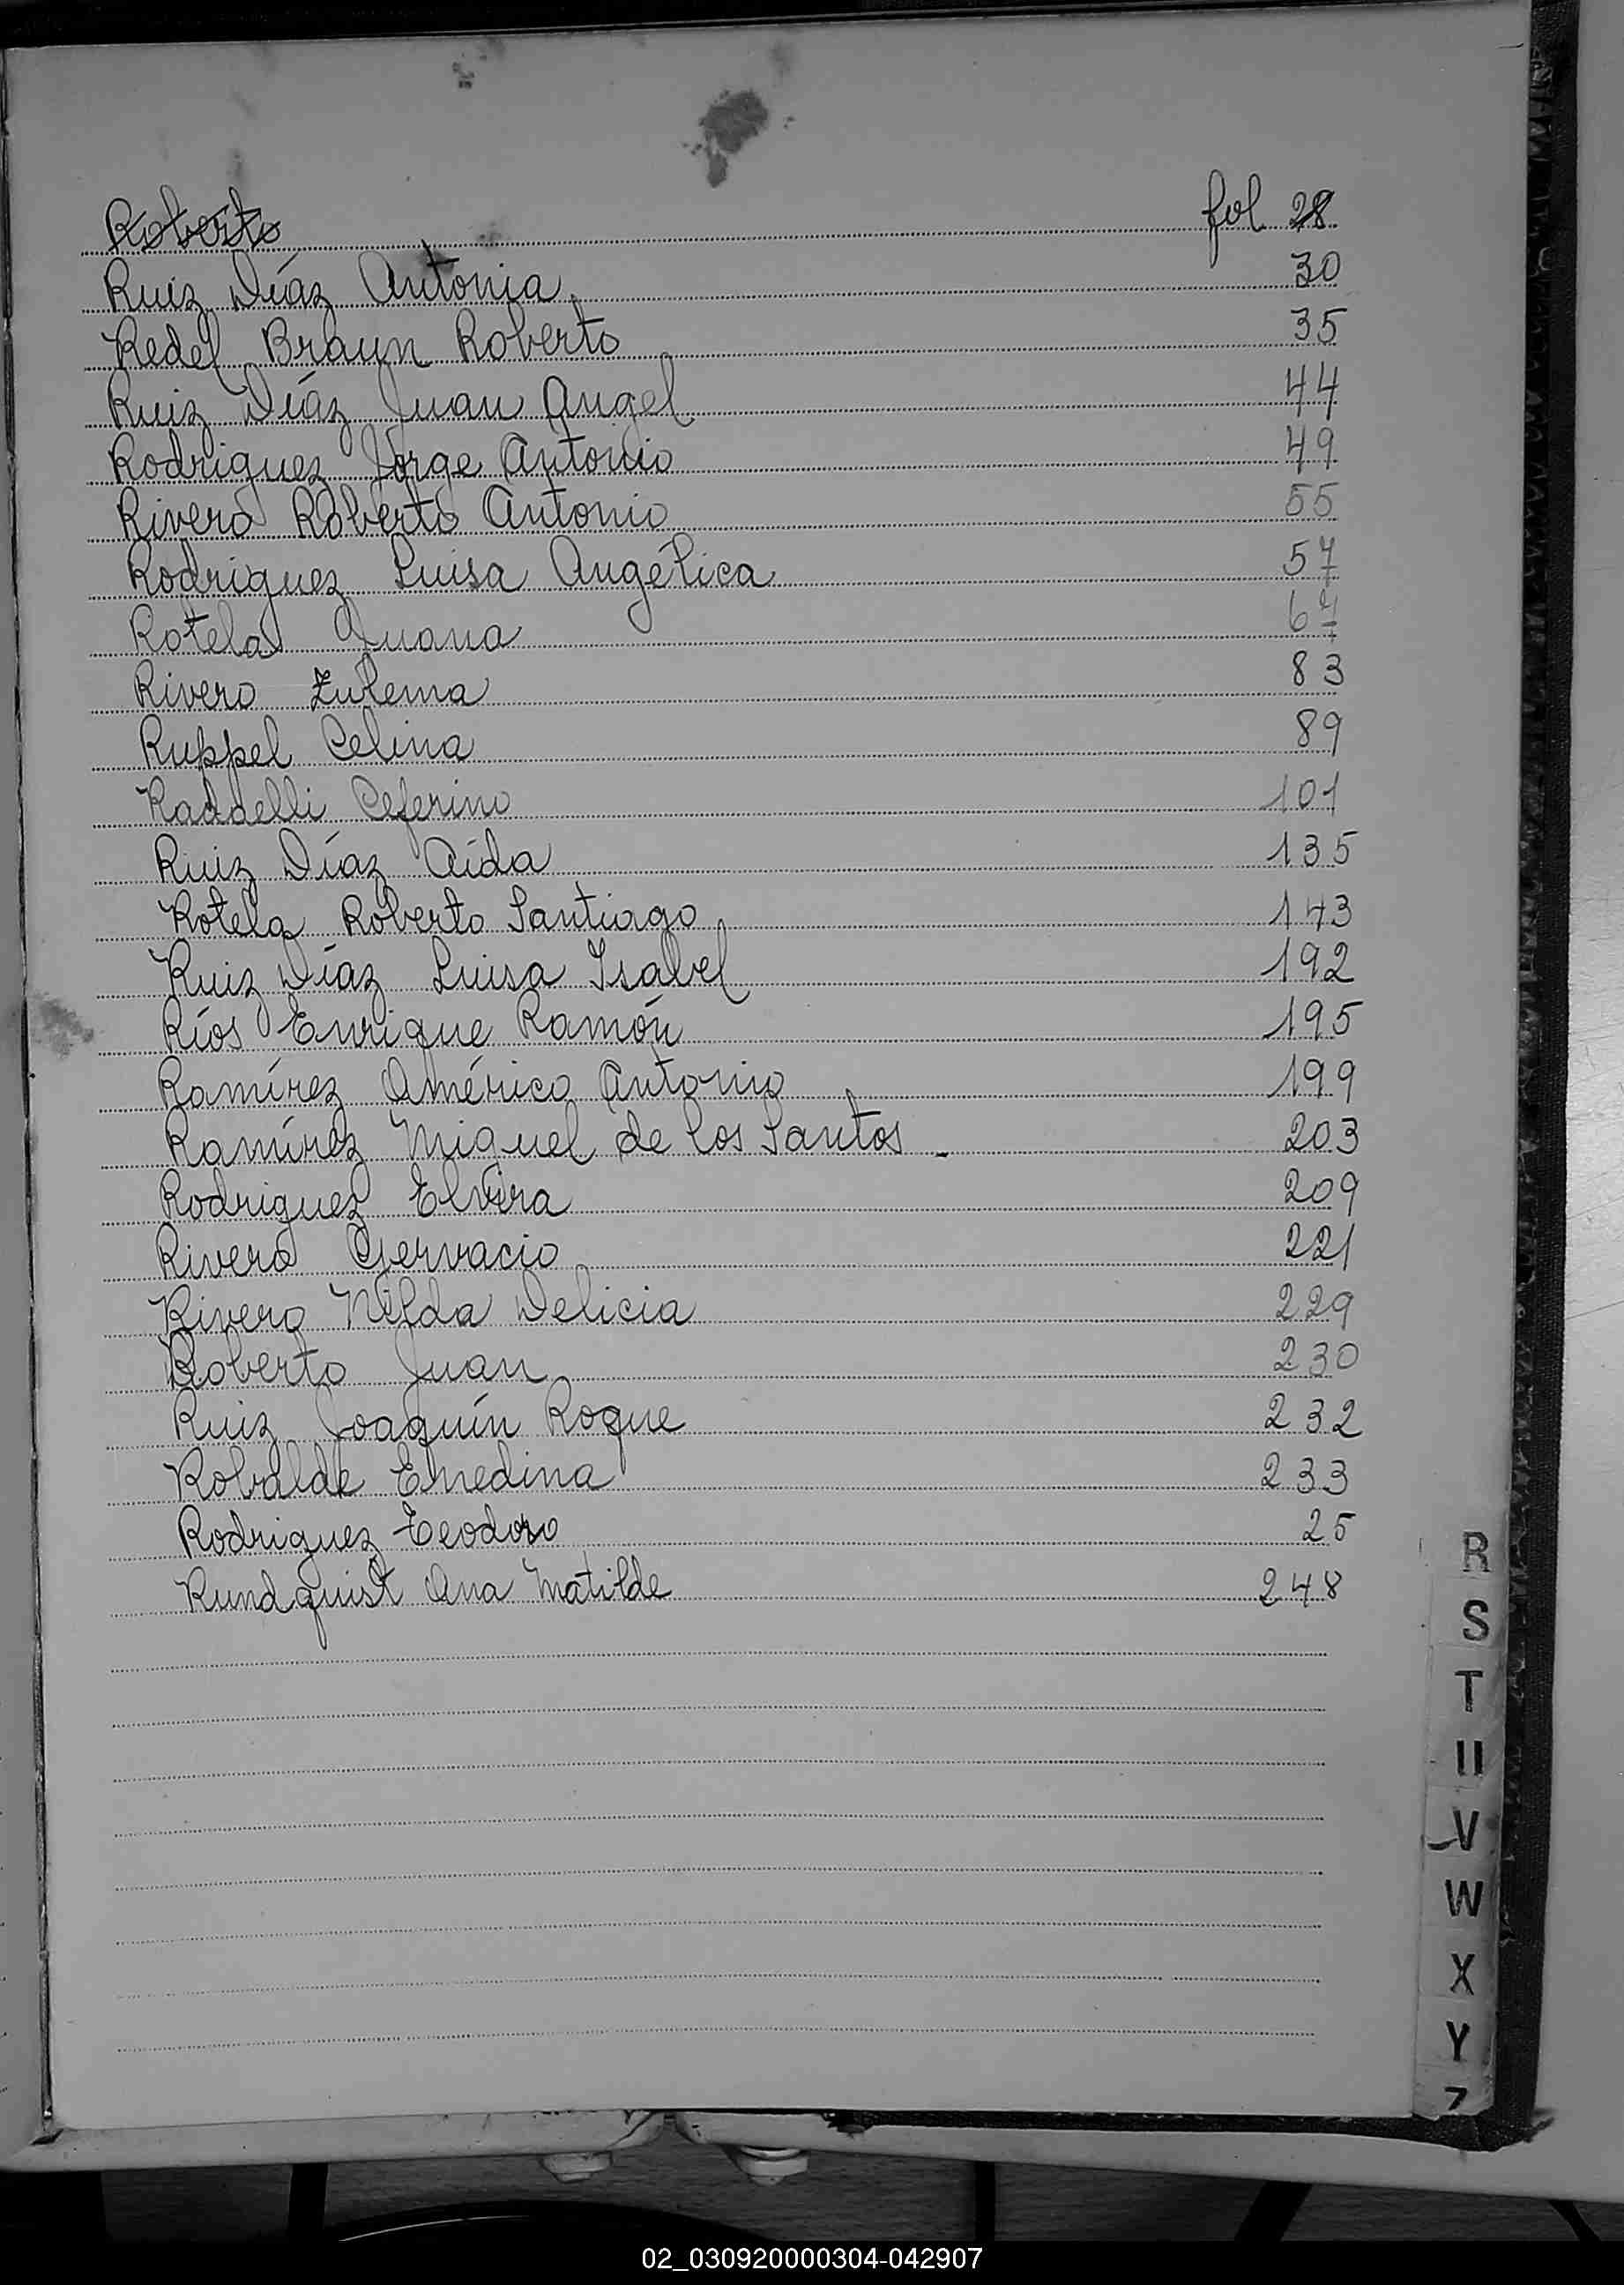 Roberto fol 28
Ruiz Díaz Antonia 30
Redel Braun Roberto 35
Ruiz Díaz Juan Angel 44
Rodriguez Jorge Antonio 49
Rivero Roberto Antonio 55
Rodriguez Luisa Angélica 57
Rotela Juana 67
Rivero Zulema 83
Ruppel Celina 89
Raddelli Ceferino 101
Ruiz Díaz Aída 135
Rotela Roberto Santiago 143
Ruiz Díaz Luisa Isabel 192
Ríos Enrique Ramón 195
Ramírez Américo Antonio 199
Ramírez Miguel de los Santos - 203
Rodriguez Elvira 209
Rivero Gervacio 221
Rivero Nilda Delicia 229
Roberto Juan 230
Ruiz Joaquín Roque 232
Robalde Enedina 233
Rodriguez Teodoro 25
Rundquist Ana Matilde 248
R
S
T
U
V
W
X
Y
Z
02_030920000304-042907